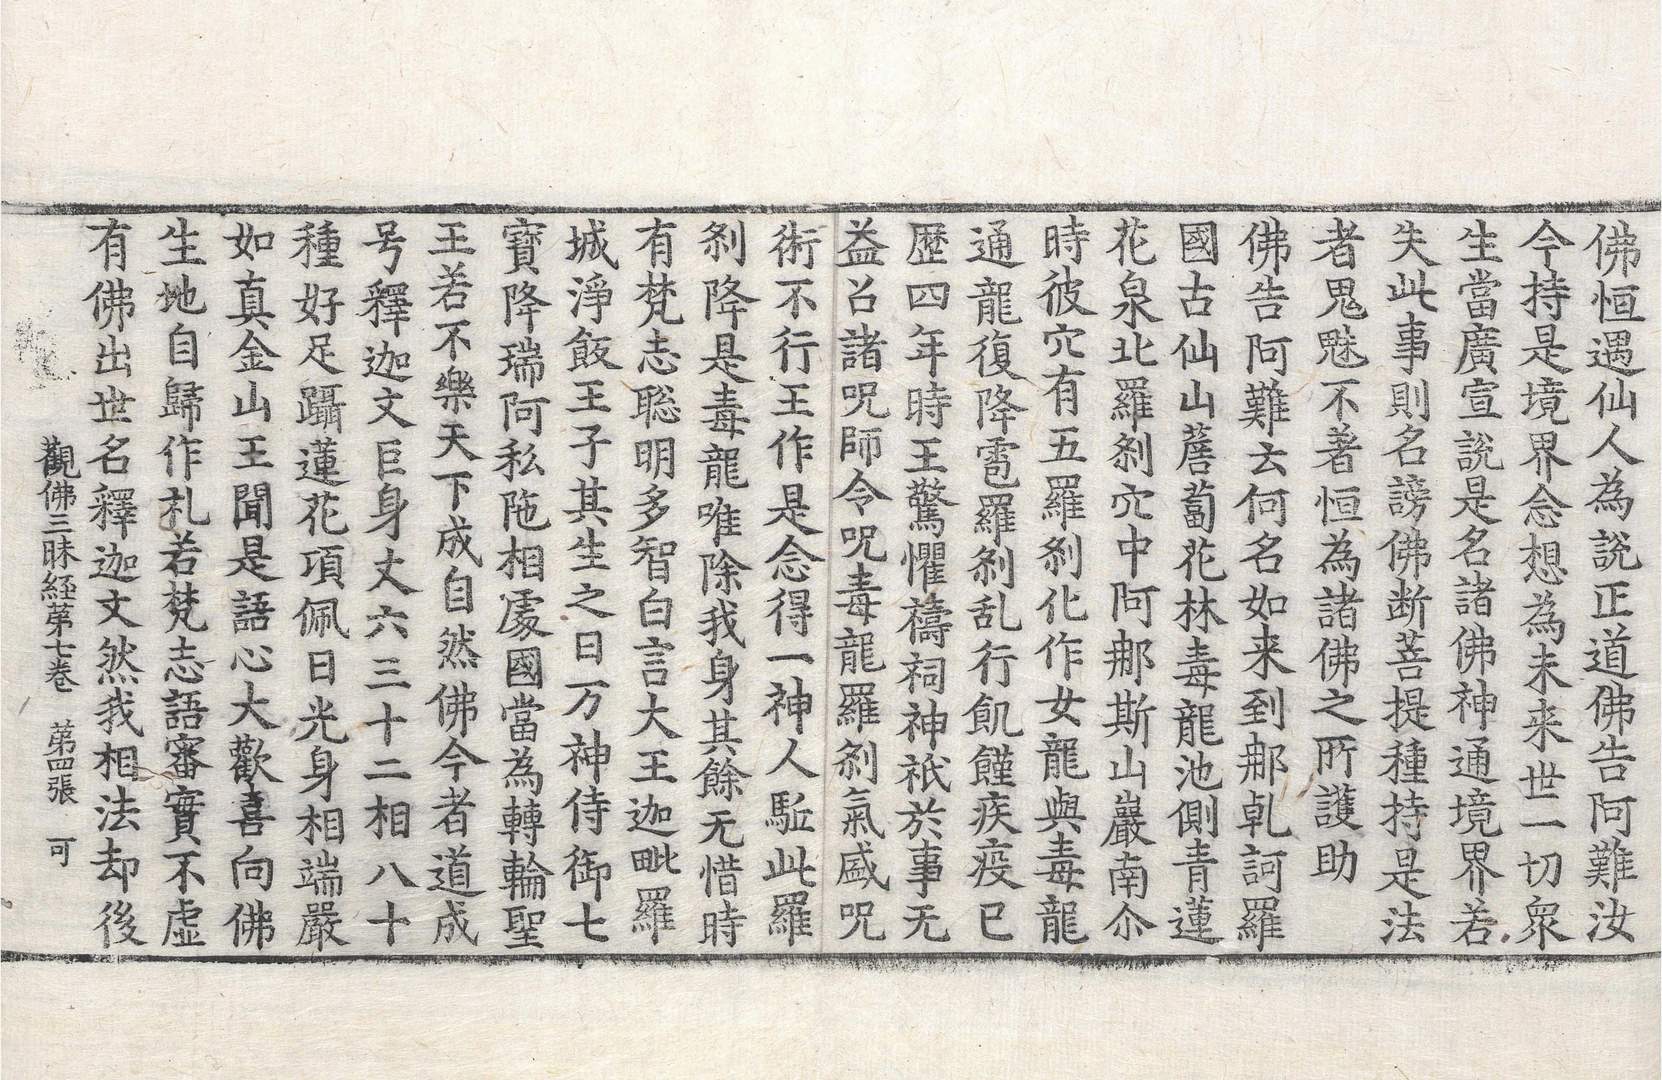 佛恒遇仙人為說正道佛告阿難汝
今持是境界念想為未来世一切衆
生當廣宣說是名諸佛神通境界若
失此事則名謗佛断菩提種持是法
者鬼魅不著恒為諸佛之所護助
佛告阿難云何名如来到那乹訶羅
國古仙山薝蔔花林毒龍池側青蓮
花泉北羅剎穴中阿那斯山巖南尒
時彼穴有五羅剎化作女龍與毒龍
通龍復降雹羅剎乱行飢饉疾疫已
歷四年時王驚懼禱祠神祇於事无
益召諸呪師令呪毒龍羅剎氣盛呪
術不行王作是念得一神人駈此羅
剎降是毒龍唯除我身其餘无惜時
有梵志聡明多智白言大王迦毗羅
城淨飯王子其生之日万神侍御七
寳降瑞阿私陁相處國當為轉輪聖
王若不樂天下成自然佛今者道成
号釋迦文巨身丈六三十二相八十
種好足躡蓮花項佩日光身相端嚴
如真金山王聞是語心大歡喜向佛
生地自歸作礼若梵志語審實不虛
有佛出世名釋迦文然我相法却後
觀佛三昧経苐七卷　苐四張　可